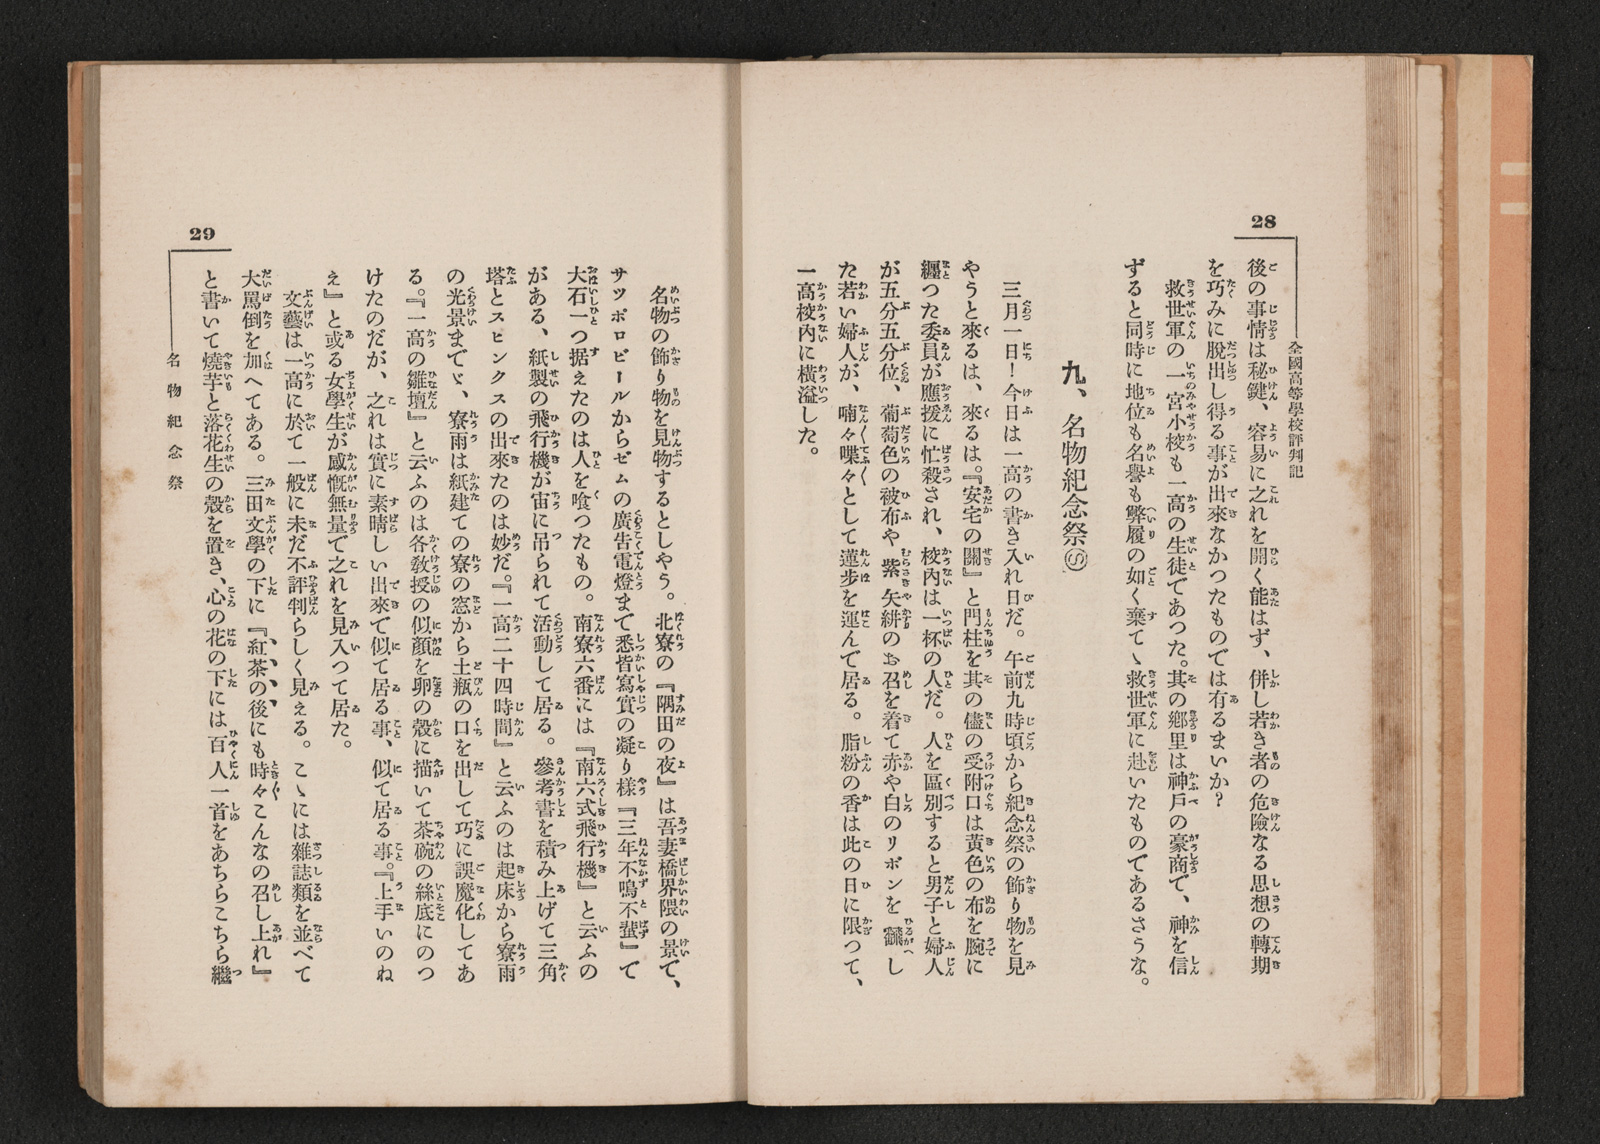 28
全國高等學校評判記
後の事情は秘鍵、容易に之れを開く能はず、併し若き者の危險なる思想の轉期
を巧みに脫出し得る事が出來なかつたものでは有るまいか?
救世軍の一宮小校も一高の生徒であつた。其の鄕里は神戸の豪商で、神を信
ずると同時に地位も名譽も弊履の如く棄てゝ救世軍に赴いたものであるさうな。
九、名物紀念祭Ⓢ
三月一日!今日は一高の書き入れ日だ。午前九時頃から紀念祭の飾り物を見
やうと來るは、來るは。『安宅の關』と門柱を其の儘の受附口は黃色の布を腕に
纒つた委員が應援に忙殺され、校內は一杯の人だ。人を區別すると男子と婦人
が五分五分位、葡萄色の被布や紫矢絣のお召を着て赤や白のリボンを飜し
た若い婦人が、喃々喋々として蓮步を運んで居る。脂粉の香は此の日に限つて、
一高校內に橫溢した。
29
名物紀念祭
名物の飾り物を見物するとしやう。北寮の『隅田の夜』は吾妻橋界隈の景で、
サツポロビールからゼムの廣吿電燈まで悉皆寫實の凝り樣『三年不鳴不蜚』て
大石一つ据えたのは人を喰つたもの。南寮六番には『南六式飛行機』と云ふの
がある、紙製の飛行機が宙に吊られて活動して居る。參考書を積み上げて三角
塔とスピンクスの出來たのは妙だ。『一高二十四時間』と云ふのは起床から寮雨
の光景までゞ、寮雨は紙建ての寮の窓から土瓶の口を出して巧に誤魔化してあ
る。『一高の雛壇』と云ふのは各敎授の似顏を卵の殼に描いて茶碗の絲底にのつ
けたのだが、之れは實に素晴しい出來で似て居る事、似て居る事。『上手いのね
え』と或る女學生が感慨無量で之れを見入つて居た。
文藝は一高に於て一般に未だ不評判らしく見える。こゝには雜誌類を並べて
大罵倒を加へてある。三田文學の下に『紅茶の後にも時々こんなの召し上れ』
と書いて燒芋と落花生の殼を置き、心の花の下には百人一首をあちらこちら繼